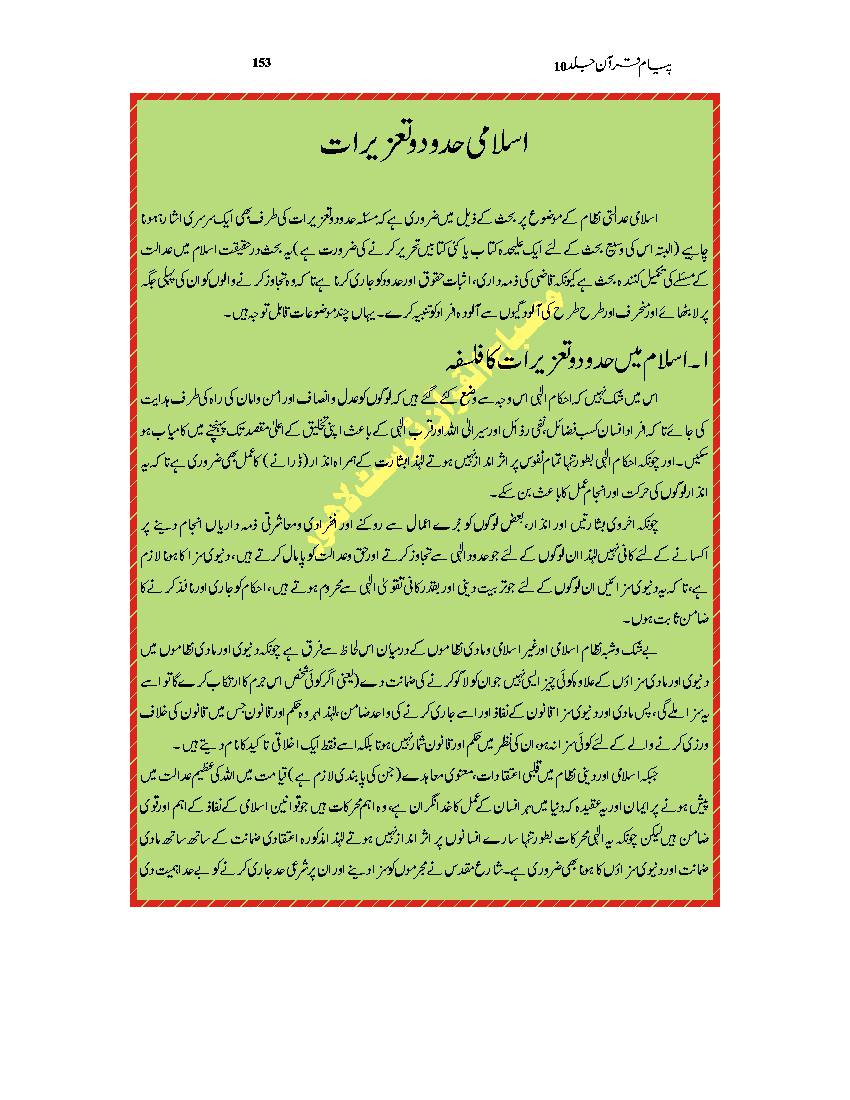 پیام قرآن جلد 10
153
اسلامی حدود و تعزیرات
اسلامی عدالتی نظام کے موضوع پر بحث کے ذیل میں ضروری ہے کہ مسئلہ حدود و تعزیرات کی طرف بھی ایک سرسری اشارہ ہونا
چاہیے (البتہ اس کی وسیع بحث کے لئے ایک علیحدہ کتاب یا کئی کتابیں تحریر کرنے کی ضرورت ہے) یہ بحث درحقیقت اسلام میں عدالت
کے مسئلے کی تکمیل کنندہ بحث ہے کیونکہ قاضی کی ذمہ داری، اثبات حقوق اور حدود کو جاری کرنا ہے تاکہ وہ تجاوز کرنے والوں کو ان کی پہلی جگہ
پر لا بٹھائے اور منحرف اور طرح طرح کی آلودگیوں سے آلودہ افراد کو تنبیہ کرے۔ یہاں چند موضوعات قابل توجہ ہیں۔
۱۔ اسلام میں حدود و تعزیرات کا فلسفہ
اس میں شک نہیں کہ احکام الٰہی اس وجہ سے وضع کئے گئے ہیں کہ لوگوں کو عدل و انصاف اور امن و امان کی راہ کی طرف ہدایت
کی جائے تاکہ فرد انسان کسب فضائل، نفی رذائل اور سیر الی اللہ اور قرب الٰہی کے باعث اپنی تخلیق کے اعلیٰ مقصد تک پہنچنے میں کامیاب ہو
سکیں۔ اور چونکہ احکام الٰہی بطور تنہا تمام نفوس پر اثر انداز نہیں ہوتے لہٰذا بشارت کے ہمراہ انذار (ڈرانے) کا عمل بھی ضروری ہے تاکہ یہ
انذار لوگوں کی حرکت اور انجام عمل کا باعث بن سکے۔
چونکہ اخروی بشارتیں اور انذار، بعض لوگوں کو برے اعمال سے روکنے اور انفرادی و معاشرتی ذمہ داریاں انجام دینے پر
اکسانے کے لئے کافی نہیں لہٰذا ان لوگوں کے لئے جو حدود الٰہی سے تجاوز کرتے اور حق و عدالت کو پامال کرتے ہیں، دنیوی سزا کا ہونا لازم
ہے، تاکہ یہ دنیوی سزائیں ان لوگوں کے لئے جو تربیت دینی اور بقدر کافی تقویٰ الٰہی سے محروم ہوتے ہیں، احکام کو جاری اور نافذ کرنے کا
ضامن ثابت ہوں۔
بے شک و شبہ نظام اسلامی اور غیر اسلامی و مادی نظاموں کے درمیان اس لحاظ سے فرق ہے چونکہ دنیوی اور مادی نظاموں میں
دنیوی اور مادی سزاؤں کے علاوہ کوئی چیز ایسی نہیں جو ان کو لاگو کرنے کی ضمانت دے (یعنی اگر کوئی شخص اس جرم کا ارتکاب کرے گا تو اسے
یہ سزا ملے گی، پس مادی اور دنیوی سزا قانون کے نفاذ اور اسے جاری کرنے کی واحد ضامن، لہٰذا ہر وہ حکم اور قانون جس میں قانون کی خلاف
ورزی کرنے والے کے لئے کوئی سزا نہ ہو، ان کی نظر میں حکم اور قانون شمار نہیں ہوتا بلکہ اسے فقط ایک اخلاقی تاکید کا نام دیتے ہیں۔
جبکہ اسلامی اور دینی نظام میں قلبی اعتقادات، معنوی معاہدے (جن کی پابندی لازم ہے) قیامت میں اللہ کی عظیم عدالت میں
پیش ہونے پر ایمان اور یہ عقیدہ کہ دنیا میں ہر انسان کے عمل کا خدا نگران ہے، وہ اہم محرکات ہیں جو قوانین اسلامی کے نفاذ کے اہم اور قوی
ضامن ہیں لیکن چونکہ یہ الٰہی محرکات بطور تنہا سارے انسانوں پر اثر انداز نہیں ہوتے لہٰذا مذکورہ اعتقادی ضمانت کے ساتھ ساتھ مادی
ضمانت اور دنیوی سزاؤں کا ہونا بھی ضروری ہے۔ شارع مقدس نے مجرموں کو سزا دینے اور ان پر شرعی حد جاری کرنے کو بے حد اہمیت دی
مصباح القرآن ٹرسٹ لاہور